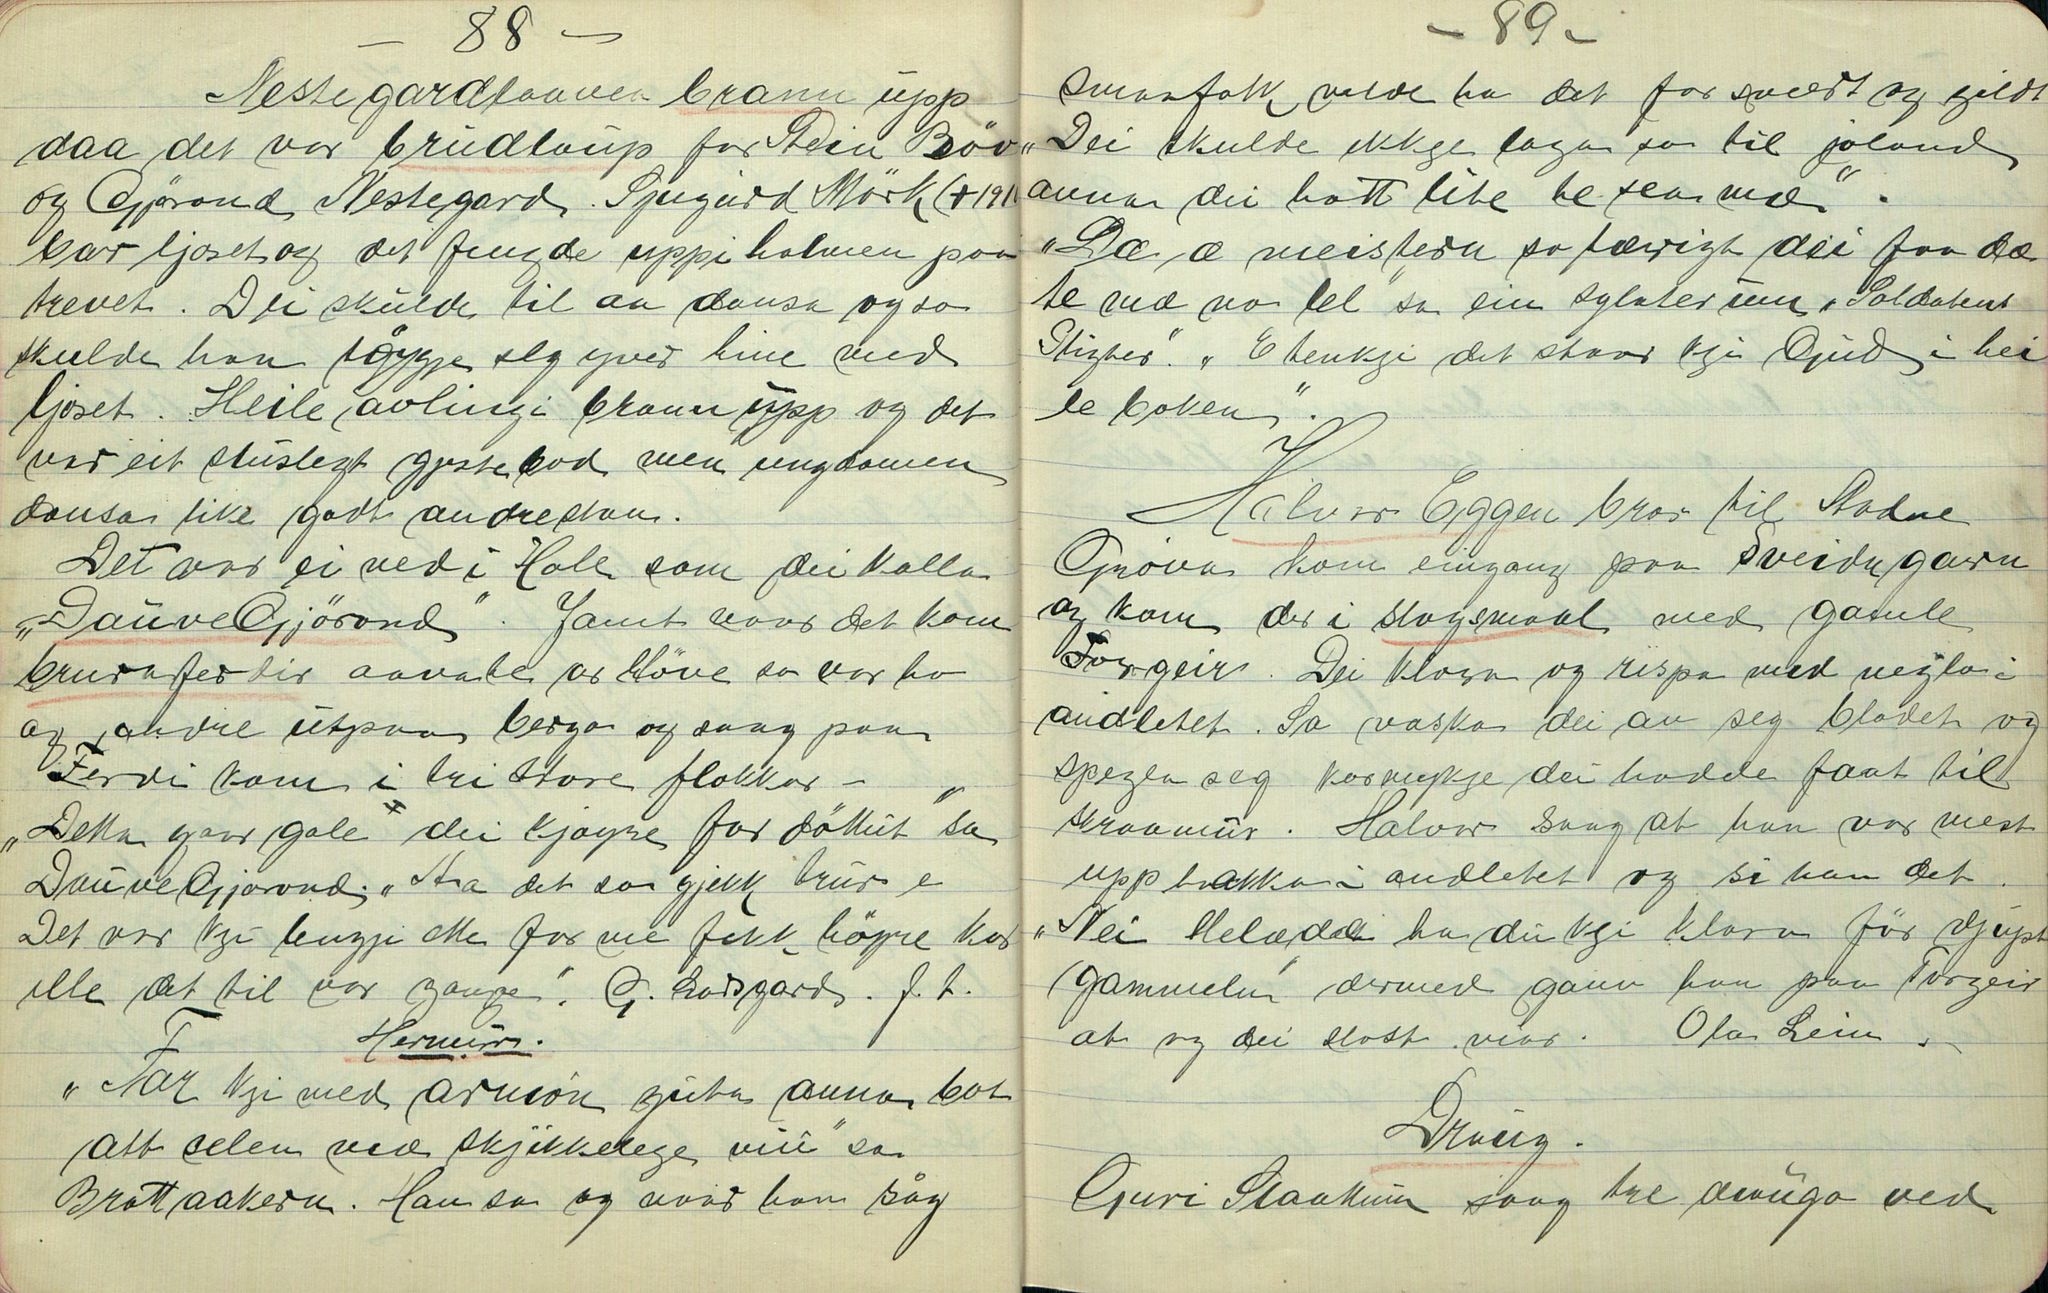 - 88 -
Nestegardlaaven brann upp
daa det var brudlaup for Stein Böv
og Gjörond Nestegard. Sjugurd Mörk (+ 191
bar ljoset og det fengde uppi halmen paa
trevet. Dei skulde til aa dansa og so
skulde han løggje seg yver hine med
ljoset. Heile avlingi brann upp og det
var eit stuslegt gjestebod men ungdomen
dansa like godt andrestan.
Det var ei ved i Hole som dei kalla
"Dauve Gjörond". Jamt naar det kom
brurafertir aavate or Höve so var ho
og andre utpaa berga og saag paa
Ferdi kom i tri store flokkar -
"Detta gaar gale dei kjøyre for döttut" sa
Dauve Gjorond. "Aa det so gjekk trur e
Det var kji lengji ette for me fekk höyre kor
ille det til var gaange". G. Lorsgard. f. t.
Hermur.
"Tar kji med armön guta anna bot
att selen mæ skjikkelege viu" sa
Brattaakern. Han sa og naar han såg
- 89 -
smaafolk vilde ha det for svært og gildt
"Dei skulde ikkje laga so til joland
anna dei hatt lite te sea mæ".
"Dæ æ meistern so færigt dei faa dæ
te mæ no lel" sa ein sylater um "Soldatens
Stigter". "E tenkji det staar kji Gud i hei
le boken".
Halvor Eggen bror til Stadne
Gröva kom eingong paa Sveidngarn
og kom der i slagsmaal med gamle
Torgeir. Dei klora og rispa med neglo i
andletet. So vaska dei av seg blodet og
spegla seg kormykje dei hadde faat til
skraamur. Halvor saag at han var mest
upphakka i andletet og si han det.
"Nei Meladdei ha du kji klora för djupt
gammeln" dermed gauv han paa Torgeir
at og dei slost meir. Ola Lein.
Draug.
Guri Slaakun saag tre drauga ved